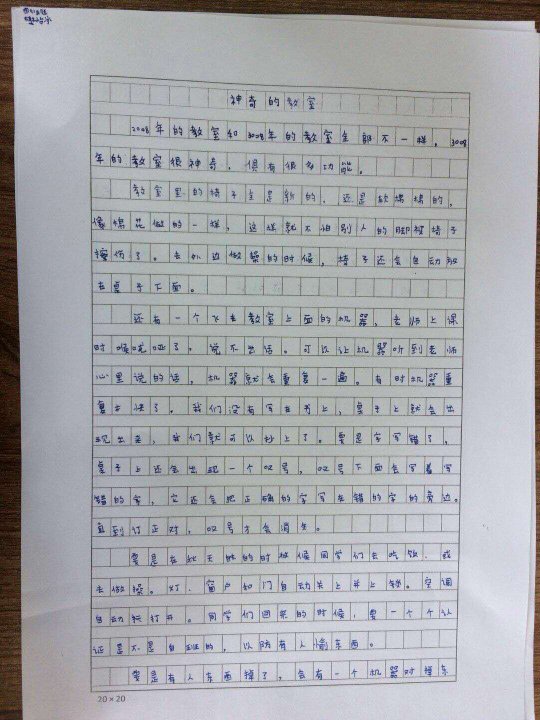 神奇的教室
2008年的教室和3008年的教室全部不一样，3008
年的教室很神奇，俱有很多功能。
教室里的椅子全是新的，还是软绵绵的，
像棉花做的一样，这样就不怕别人的脚被椅子
撞伤了。去外边做操的时候，椅子还会自动放
在桌子下面。
还有一个飞在教室上面的机器，老师上课
时喉咙哑了，说不出话。可以让机器听到老师
心里说的话，机器就会重复一遍。有时机器重
复太快了。我们没有写在书上，桌子上就会出
现出来，我们就可以抄上了。要是字写错了，
桌子上还会出现一个02号，02号下面会写着写
错的字，它还会把正确的字写在错的字的旁边。
直到订正对，02号才会消失。
要是在秋天的时候同学们去吃饭，或
去做操。灯、窗户和门自动关上并上锁。空调
自动打开。同学们回来的时候，要一个个认
证是不是自班的，以防有人偷东西。
要是有人东西掉了，会有一个机器对掉东
20×20